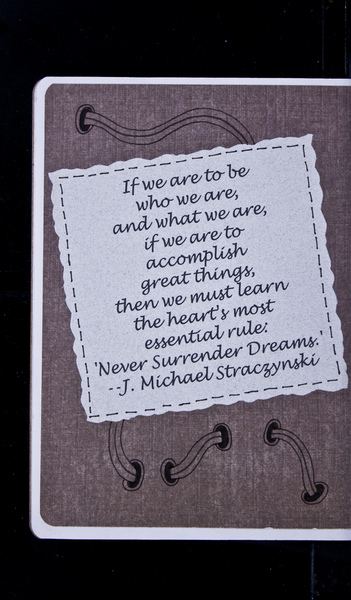 If we are to be
who we are,
and what we are,
if we are to
accomplish
great things,
then we must learn
the heart's most
essential rule:
'Never Surrender Dreams.'
--J. Michael Straczynski